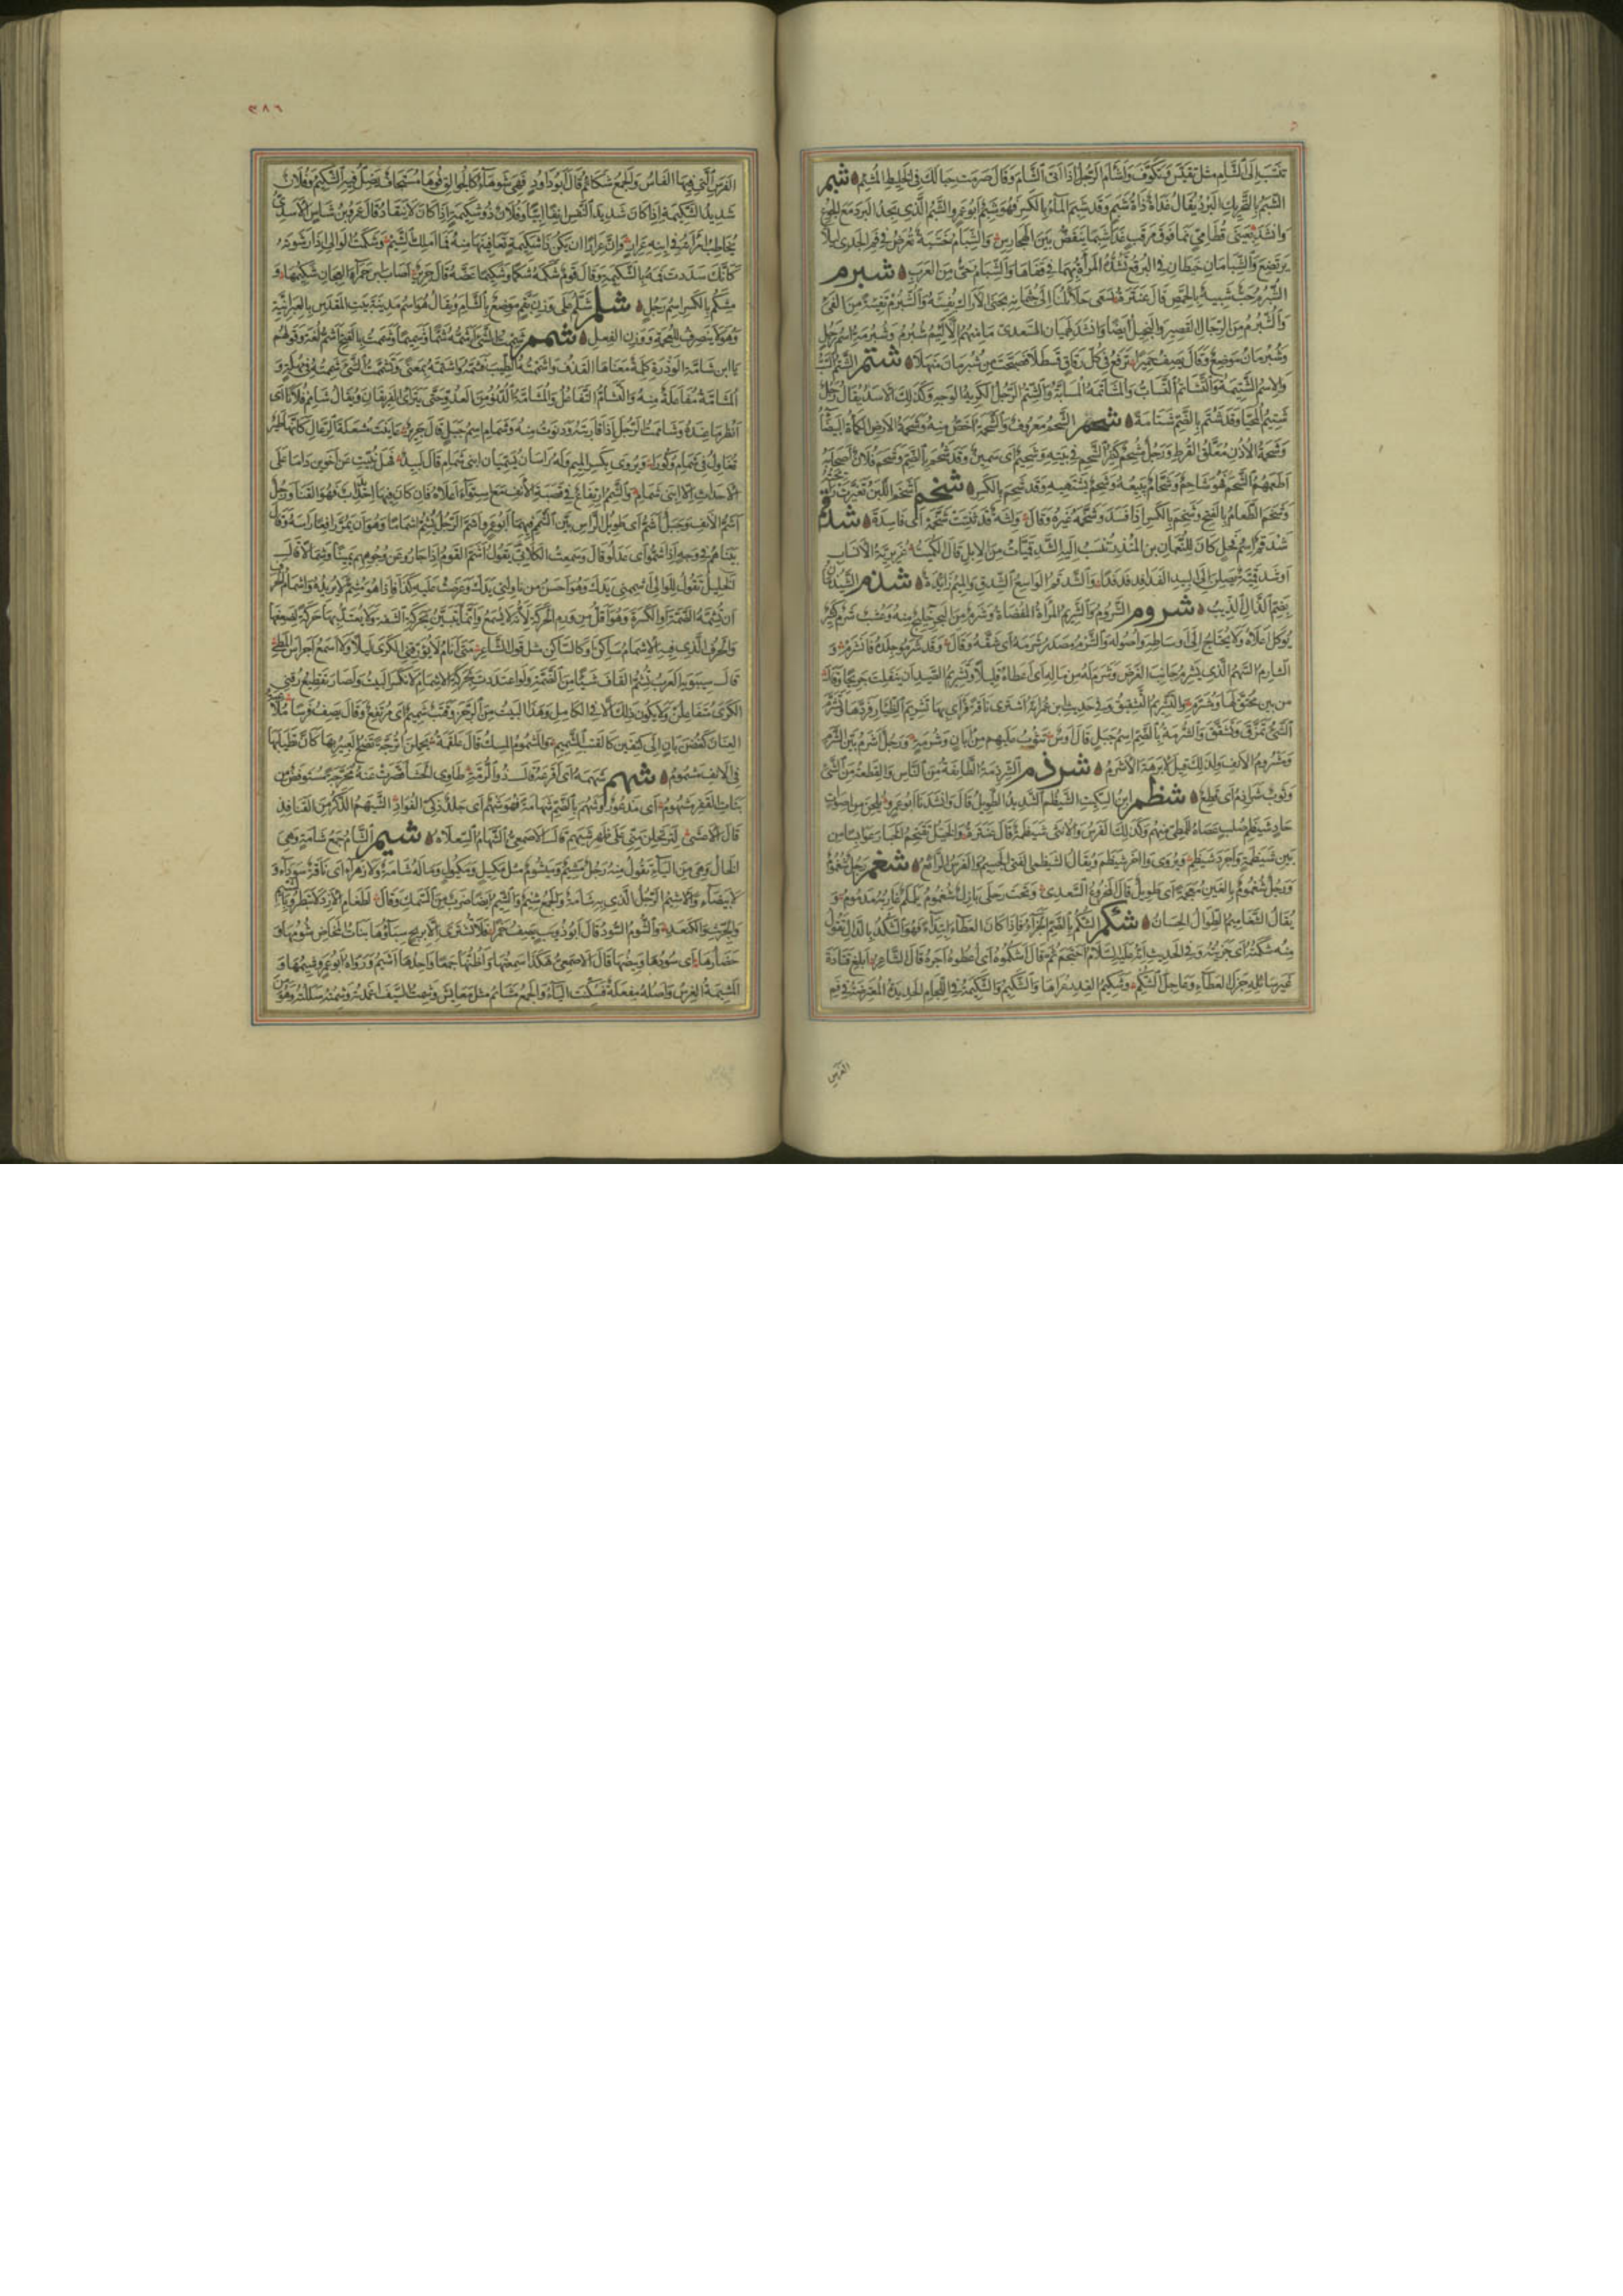 تنسب الى الشام مثل تقيس وتكوف واشام الرجل اذا اتى الشام وقال صرمت حبالك في الخليط المشئم شبم
الشبم بالتحريك البرد يقال غداة ذات شبم وقد شبم الماء بالكسر فهو شبم ابو عمرو الشبم الذي يجد البرد مع الجوع
وانشد بعيني قطامي نما فوق مرقب غدا شبما ينقض بين الهجارس والشبام خشبة تعرض في فم الجدي ليلا
يرتضع والشبامان خيطان في البرقع تشده المراة بهما في قفاها والشبام حي من العرب شبرم
الشبرم حب شبيه بالحمص قال عنترة تسعى حلائلنا الى جثمانه بجنى الاراك تفيئة والشبرم تفيئة من الفيء
والشبرم من الرجال القصير والبخيل ايضا وانشد لهميان السعدي ما منهم الا لئيم شبرم وشبرمة اسم رجل
وشبرمان موضع وقال يصف حميرا ترفع في كل زقاق قسطلا فصبحت من شبرمان منهلا شتم الشتم السب
والاسم الشتيمة والتشاتم التساب والمشاتمة المسابة والشتيم الرجل الكريه الوجه وكذلك الاسد يقال رجل
شتيم المحيا وقد شتم بالضم شتامة شحم الشحم معروف والشحمة اخص منه وشحمة الارض الكماة البيضاء
وشحمة الاذن معلق القرط ورجل مشحم كثير الشحم في بيته وشحيم اي سمين وقد شحم بالضم وشحم فلان اصحابه
اطعمهم الشحم فهو شاحم وشحام يبيعه وشحم يشتهيه وقد شحم بالكسر شخم اشخم اللبن تغيرت رائحته
وشخم الطعام بالفتح وشخم بالكسر اذا فسد وشخمه غيره وقال ولثة قد ثتنت مشخمة اي فاسدة شدقم
شدقم اسم فحل كان للنعمان بن المنذر تنسب اليه الشدقميات من الابل قال الكميت غريرية الانساب
او شدقمية يصلن الى البيد الفدافد فدفدا والشدقم الواسع الشدق والميم زائدة شذم الشيذمان
بضم الذال الذيب شرم الشروم والشريم المراة المفضاة وشرم من البحر خليج منه وعشب شرم كثير
يوكل اعلاه ولا يحتاج الى اوساطه واصوله والشرم مصدر شرمه اي شقه وقال وقد شرموا جلده فانشرم و
الشارم السهم الذي يشرم جانب الغرض وشرم له من ماله اي اعطاه قليلا وتشريم الصيد ان ينفلت جريحا وقال
من بين محتق لها ومشرم والتشريم التشقيق وفي حديث ابن عمر انه اشترى ناقة فراى بها تشريم الظئار فردها وتشرم
الشيء تمزق وتشقق والشرمة بالضم اسم جبل قال اوس تثوب عليهم من ابان وشرمة ورجل اشرم بين الشرم
ومشروم الانف ولذلك قيل لابرهة الاشرم شرذم الشرذمة الطائفة من الناس والقطعة من الشيء
وثوب شراذم اي قطع شظم ابن السكيت الشيظم الشديد الطويل قال وانشدنا ابو عمرو يلحن من اصوات
حاد شيظم صلب عصاه للمطي منهم وكذلك الفرس والانثى شيظمة قال عنترة والخيل تقتحم الخبار عوابسا من
بين شيظمة واجرد شيظم ويروى واخر شيظم ويقال الشيظمي الفتى الجسيم والفرس الرائع شغم رجل شغموم
ورجل شغموم بالغين معجمة اي طويل قال المخروع السعدي وتحت رحلي بازل شغموم ململم غاربه مدموم و
يقال الشغاميم الطوال الحسان شكم الشكم بالضم الجزاء فاذا كان العطاء ابتداء فهو الشكد بالدال تقول
منه شكمته اي جزيته وفي الحديث انه عليه السلام احتجم ثم قال اشكموه اي اعطوه اجره قال الشاعر ابلغ قتادة
غير سائله جزل العطاء وعاجل الشكم وشكيم القدر عراها والشكيم والشكيمة في اللجام الحديدة المعترضة في فم
الفرس
٣٨٦
الفرس التي فيها الفاس والجمع شكائم قال ابو داود فهي شوهاء كالجوالق فوها مستجاف يضل فيه الشكيم وفلان
شديد الشكيمة اذا كان شديد النفس انفا ابيا وفلان ذو شكيمة اذا كان لا ينقاد قال عمرو بن شاس الاسدي
يخاطب امراته في ابنه عرار وان عرارا ان يكن ذا شكيمة تعافينها منه فما املك الشيم وشكمت الوالي اذا رشوته
كانك سددت فمه بالشكيمة وقال قوم شكمه شكما وشكيما عضه قال جرير اصاب ابن حمراء العجان شكيمها و
مشكم بالكسر اسم رجل شلم شلم على وزن بقم موضع بالشام ويقال هو اسم مدينة بيت المقدس بالعبرانية
وهو لا ينصرف للعجمة ووزن الفعل شمم شممت الشيء اشمه شما وشميما وشممت بالفتح اشم لغة وقولهم
يا ابن شامة الوذرة كلمة معناها القذف واشممته الطيب فشمه واشتمه بمعنى وتشممت الشيء شممته في مهلة و
المشامة مفاعلة منه والتشام التفاعل والمشامة الدنو من العدو حتى يتراءى الفريقان ويقال شامم فلانا اي
انظر ما عنده وشاممت الرجل اذا قاربته ودنوت منه وشمام اسم جبل قال جرير عاينت مشعلة الرعال كانها طير
تغاول في شمام وكورا ويروى بكسر الميم وله راسان يسميان ابني شمام قال لبيد فهل نبئت عن اخوين داما على
الاحداث الا ابني شمام والشمم ارتفاع في قصبة الانف مع استواء اعلاه فان كان فيها احديداب فهو القنا ورجل
اشم الانف وجبل اشم اي طويل الراس بين الشمم فيهما ابو عمرو اشم الرجل يشم اشماما وهو ان يمر رافعا راسه وقال
بينا هم في وجه اذ اشموا اي عدلوا قال وسمعت الكلابي يقول اشم القوم اذا جاروا عن وجوههم يمينا وشمالا قال
الخليل تقول للوالي اشممني يدك وهو احسن من ناولني يدك وعرضت عليه كذا فاذا هو مشم لا يريده واشمام الحرف
ان تشمه الضمة او الكسرة وهو اقل من روم الحركة لانه لا يسمع وانما يتبين بحركة الشفة ولا يعتد بها حركة لضعفها
والحرف الذي فيه الاشمام ساكن او كالساكن مثل قول الشاعر متى انام لا يؤرقني الكرى ليلا ولا اسمع اجراس المطي
قال سيبويه العرب تشم القاف شيئا من الضمة ولو اعتددت بحركة الاشمام لانكسر البيت ولصار تقطيع رقني
الكرى متفاعلن ولا يكون ذلك الا في الكامل وهذا البيت من الرجز وقتب شميم اي مرتفع وقال يصف فرسا ملاعبة
العنان كغصن بان الى كتفين كالقتب الشميم والمشموم المسك قال علقمة يحملن اترجة نضخ العبير بها كان تطيابها
في الانف مشموم شهم شهمه اي افزعه قال ذو الرمة طاوي الحشا قصرت عنه محرجة مستوفض من
بنات القفر مشهوم اي مذعور وشهم بالضم شهامة فهو شهم اي جلد ذكي الفؤاد الشيهم الذكر من القنافذ
قال الاعشى لترتحلن مني على ظهر شيهم قال الاصمعي الشهام السعلاة شيم الشام جمع شامة وهي
الخال وهي من الياء تقول منه رجل مشيم ومشيوم مثل مكيل ومكيول وما له شامة ولا زهراء اي ناقة سوداء و
لا بيضاء والاشيم الرجل الذي به شامة والجمع شيم والشيم ايضا ضرب من السمك وقال لطغام الازد لا تبطروا بالشيم
والجريث والكنعد والشوم السود قال ابو ذويب يصف خمرا فلا تشترى الا بربح سباؤها بنات المخاض شومها و
حضارها اي سودها وبيضها قال الاصمعي هكذا سمعتها واظنها جمعا واحدها اشيم ورواه ابو عمرو شيمها و
المشيمة الغرس واصله مفعلة فسكنت الياء والجمع مشائم مثل معايش وشمت السيف اغمدته وشمته سللته وهو من